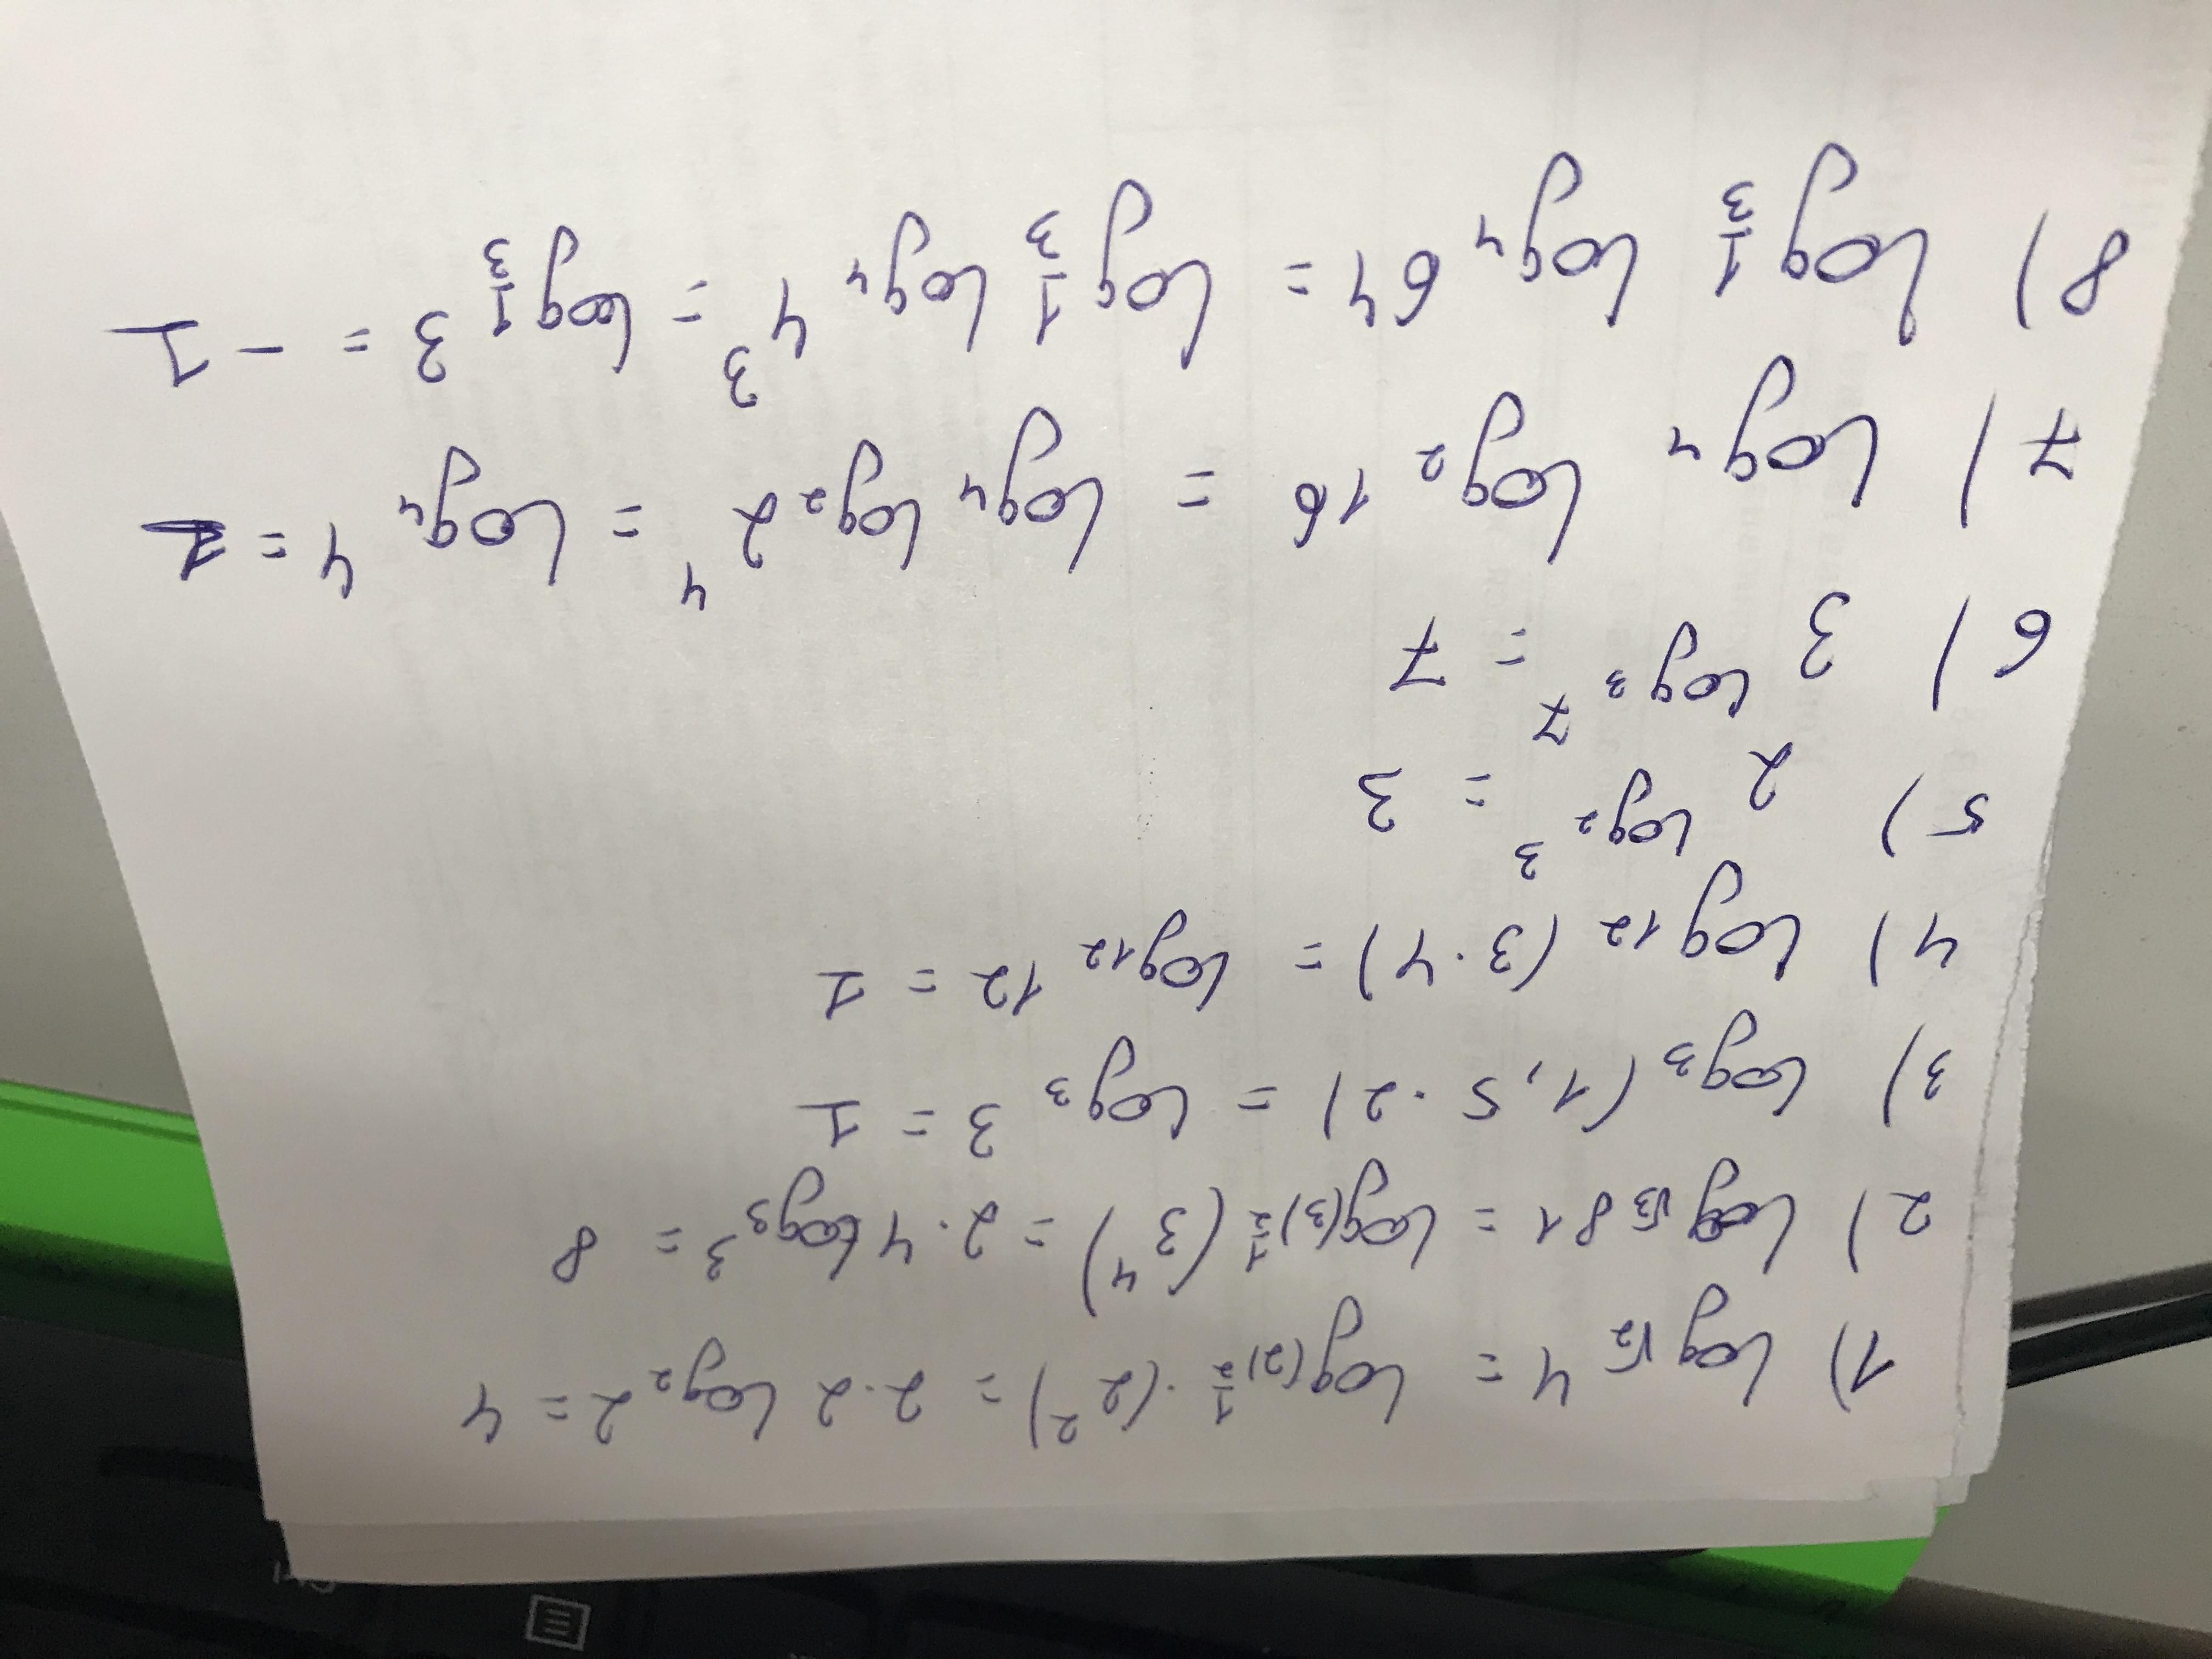 1) log√2 4 = log(2)^1/2 · (2²) = 2·2 log₂ 2 = 4
2) log√3 81 = log(3)^1/2 (3⁴) = 2·4 log₃ 3 = 8
3) log₃ (1,5·2) = log₃ 3 = 1
4) log₁₂ (3·4) = log₁₂ 12 = 1
5) 2^log₂ 3 = 3
6) 3^log₃ 7 = 7
7) log₄ log₂ 16 = log₄ log₂ 2⁴ = log₄ 4 = 1
8) log 1/3 log₄ 64 = log 1/3 log₄ 4³ = log 1/3 3 = -1